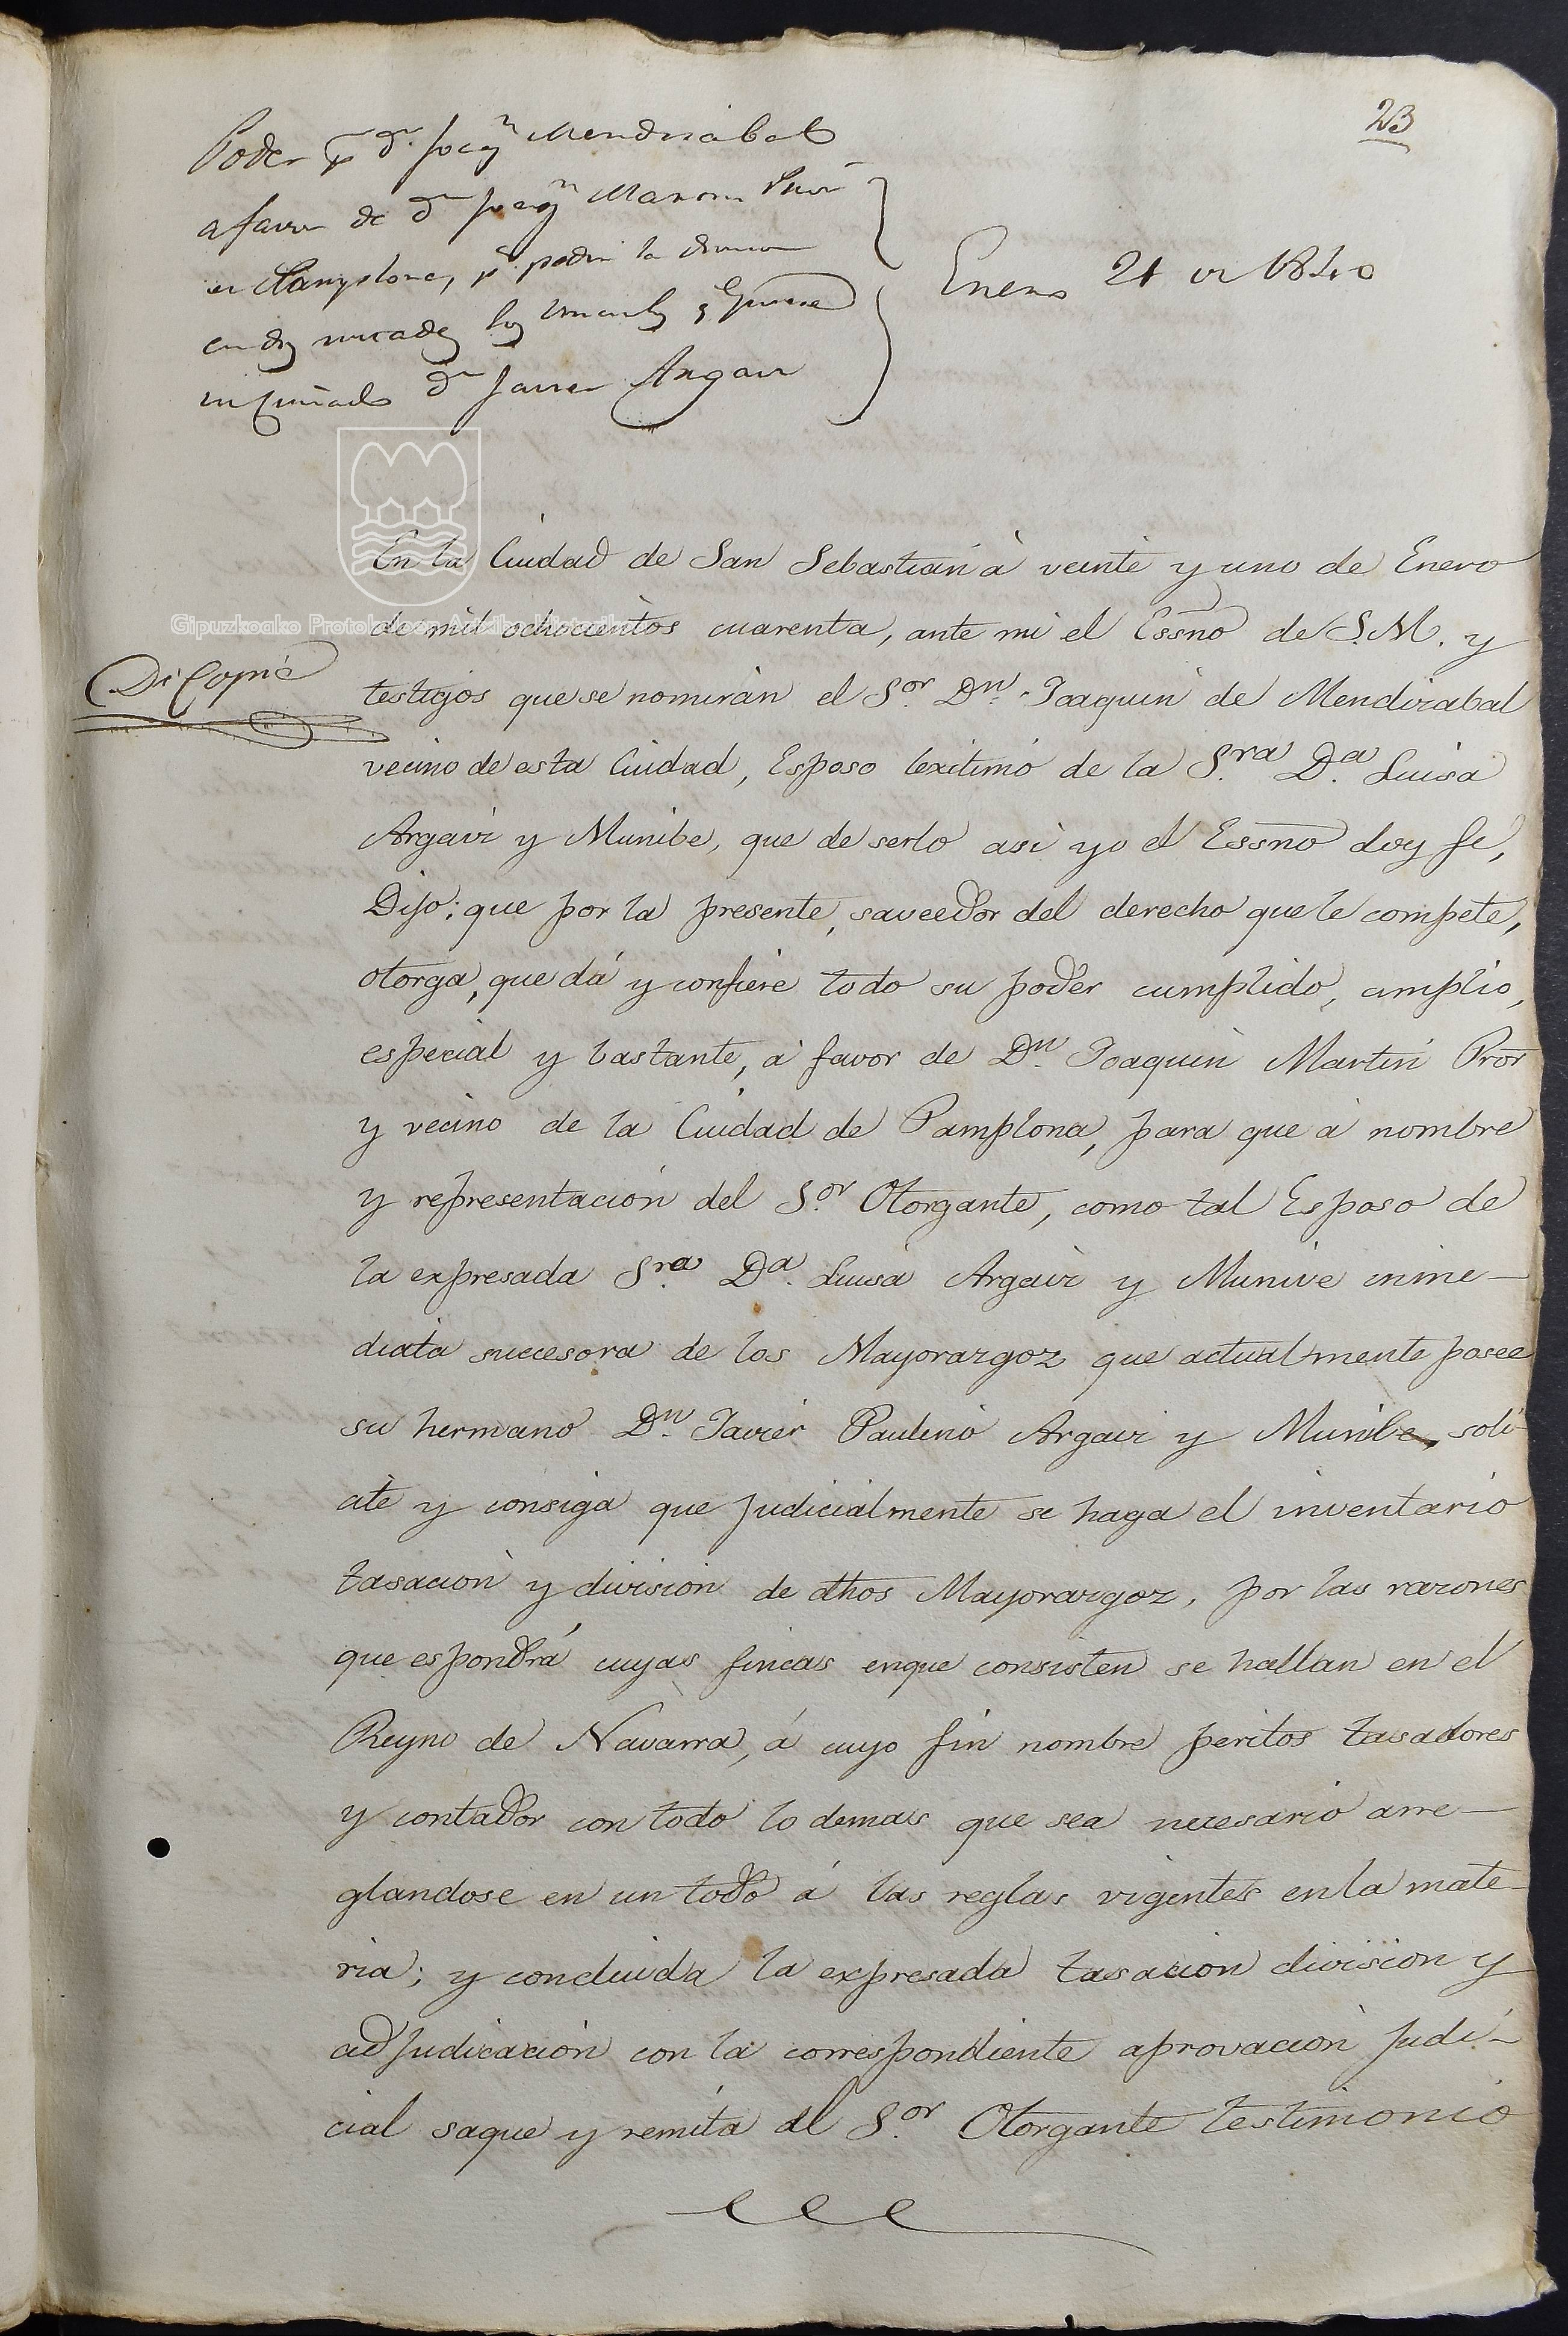 23
Poder p.r d.n Joaq.n Mendizabal
a favor de d.n Joaq.n Martin Pror
en Pamplona, p.a pedir la division
en dos mitades los vinculos q.e posee
su cuñado d.n Javier Argaiz
Enero 21 de 1840
Gipuzkoako Protokoloen Artxibo Historikoa
Di Copia
En la Ciudad de San Sebastian à veinte y uno de Enero
de mil ochocientos cuarenta, ante mi el Essno de S.M. y
testigos que se nomiràn el S.or D.n Joaquin de Mendizabal
vecino de esta Ciudad, Esposo lexitimo de la S.ra D.a Luisa
Argaiz y Munibe, que de serlo asi yo el Essno doy fé,
Dijo; que por la presente, saveedor del derecho que le compete,
otorga, que dá y confiere todo su poder cumplido, amplio,
especial y bastante, à favor de D.n Joaquin Martin Pror
y vecino de la Ciudad de Pamplona, para que à nombre
y representacion del S.or Otorgante, como tal Esposo de
la expresada S.ra D.a Luisa Argaiz y Munive inme-
diata succesora de los Mayorazgoz que actualmente posee
su hermano D.n Javier Paulino Argaiz y Munibe, soli-
cite y consiga que judicialmente se haga el inventario
tasacion y division de dhos Mayorazgoz, por las razones
que espondrá cuyas fincas enque consisten se hallan en el
Reyno de Navarra, á cuyo fin nombre peritos tasadores
y contador con todo lo demas que sea necesario arre-
glandose en un todo á las reglas vigentes en la mate-
ria; y concluida la expresada tasacion division y
adjudicacion con la correspondiente aprovacion judi-
cial saque y remita al S.or Otorgante testimonio